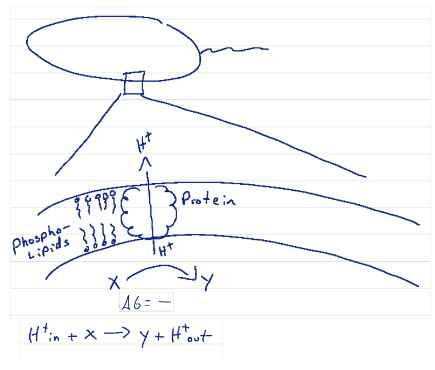 H⁺
Protein
Phospho-
Lipids
H⁺
X Y
ΔG = —
H⁺in + X → Y + H⁺out